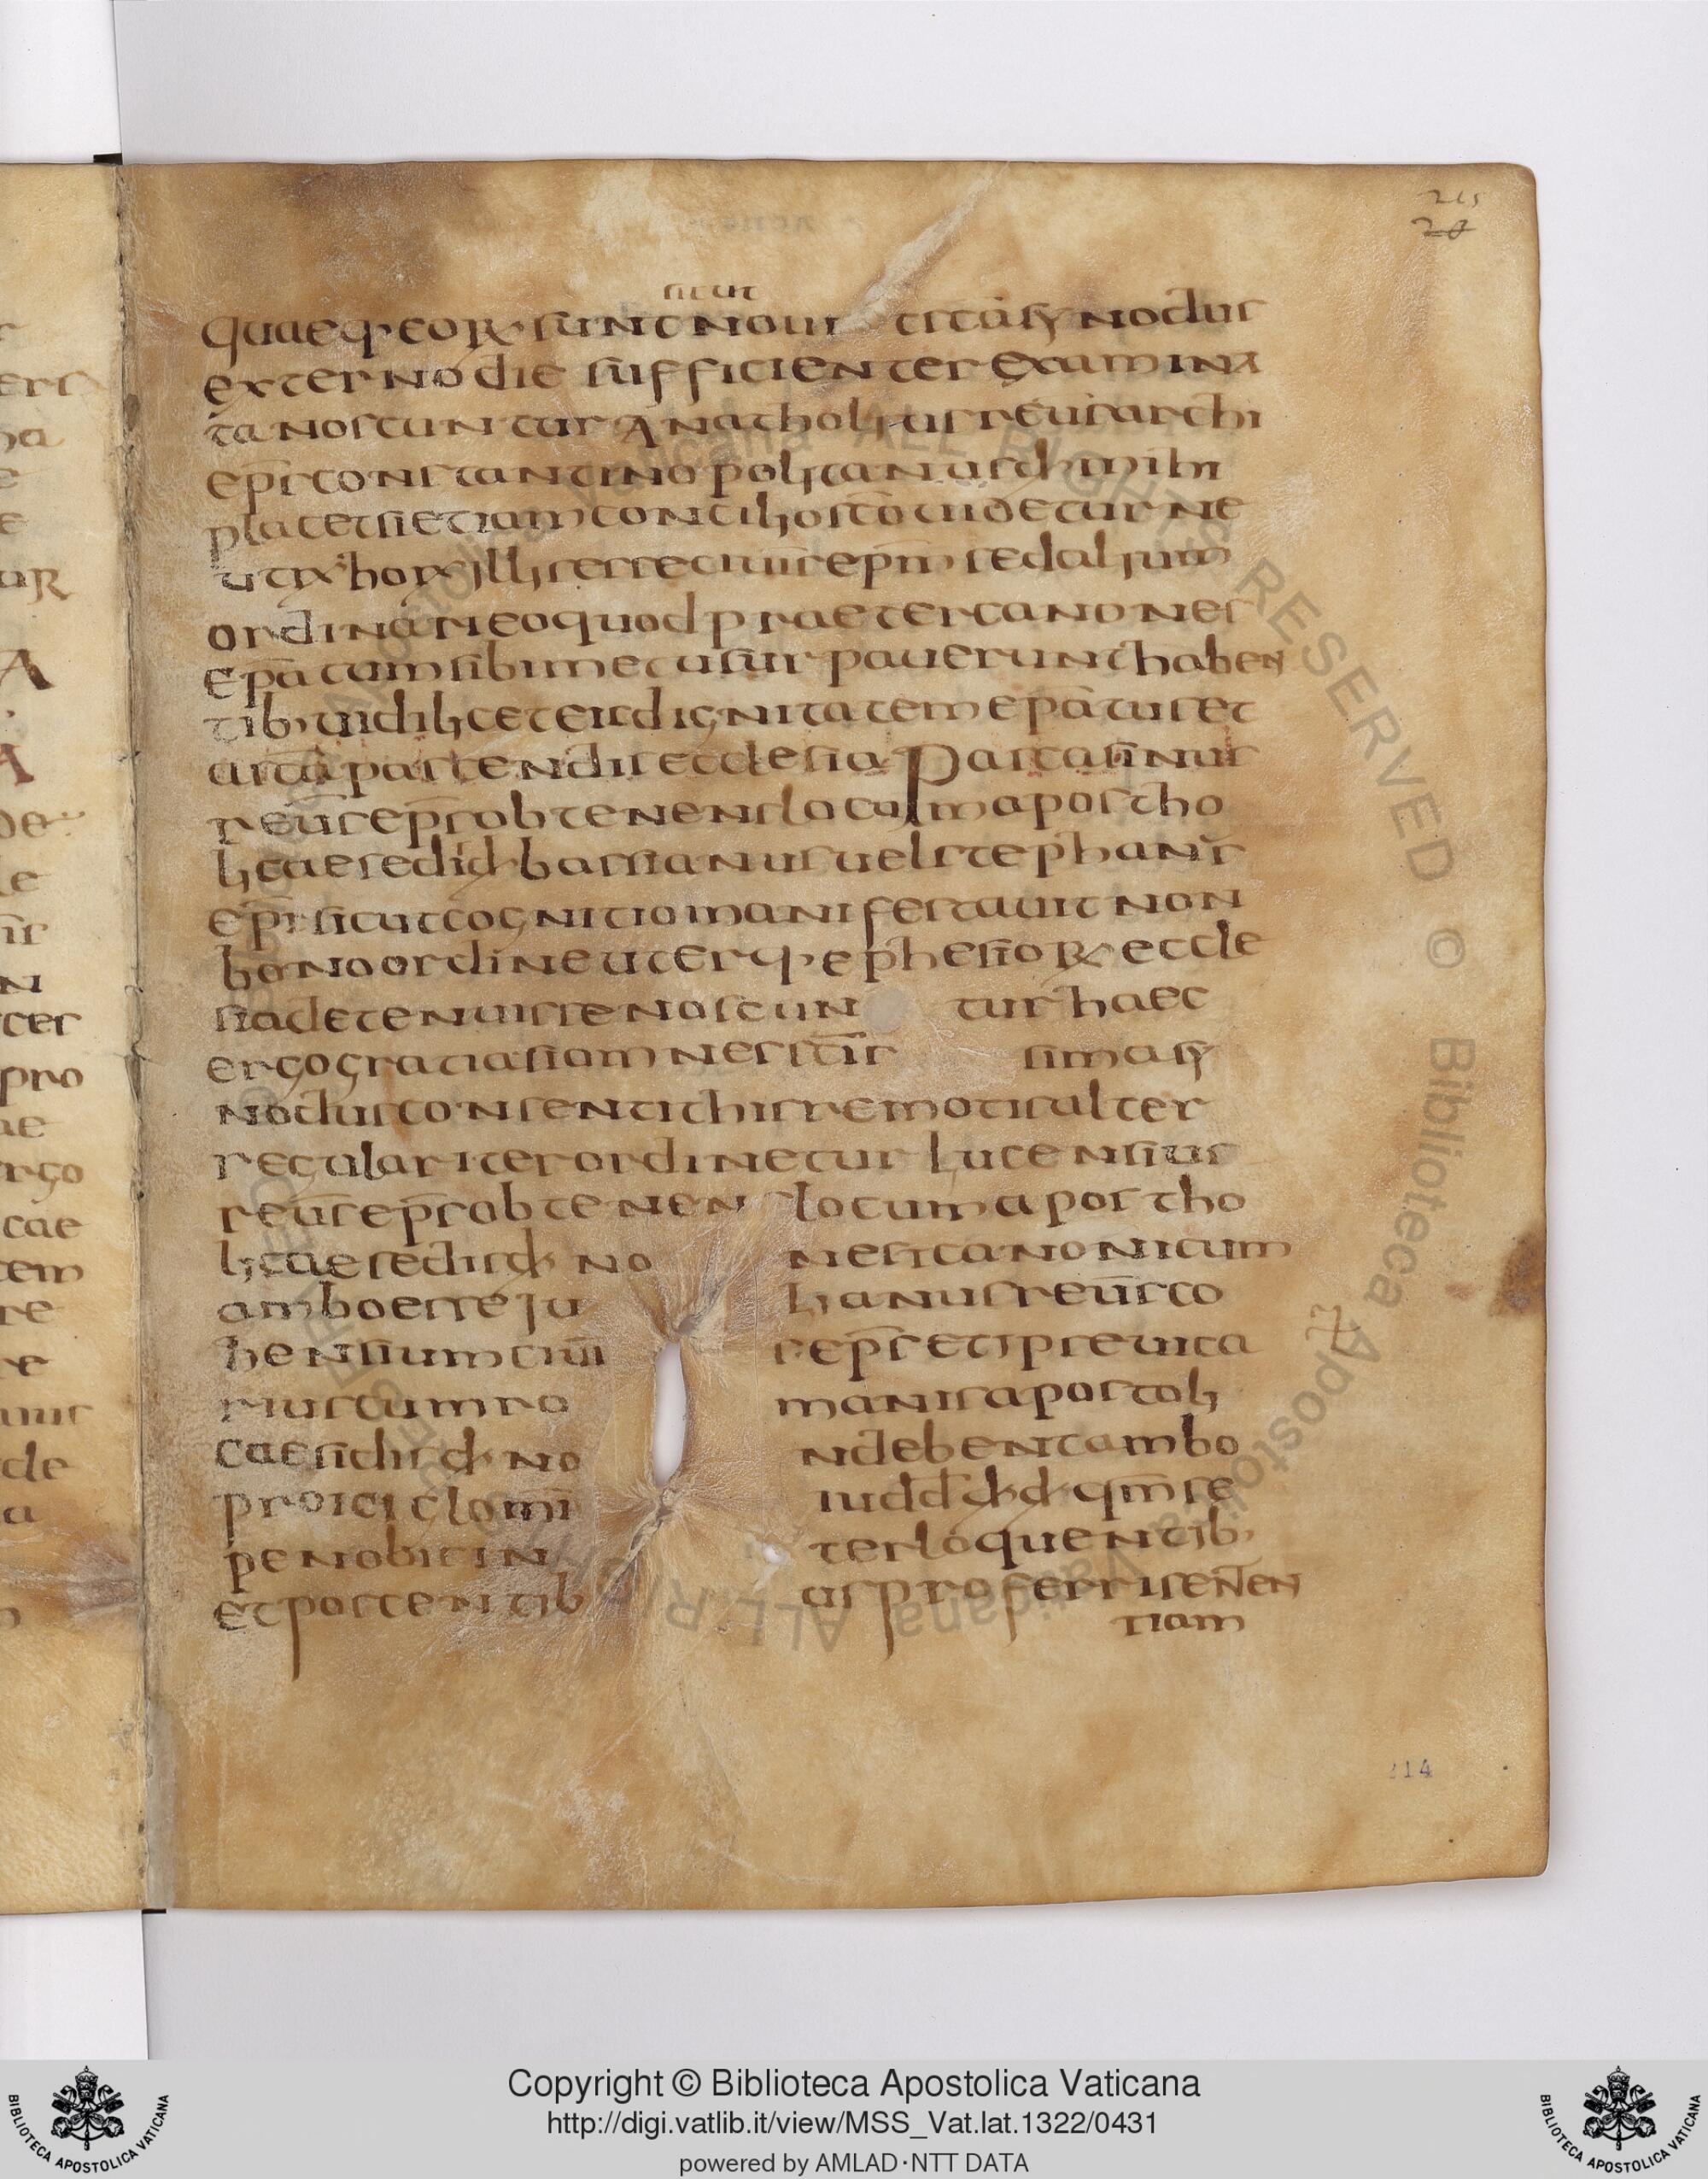 215
20
sicut
quaeq· eoR· sunt noui t scā sy nodus
externo die sufficienter examina
ta noscuntur Anatholius reu̅s archi
ep̅s constantinopolitanus d· mihi
placet si etiam concilio sc̅o uidetur ne
utrū hoR· illis esse ciui̅s ep̅m sed alium
ordinari eo quod praeter canones
ep̅atum sibimet usurpauerunt haben
tib· uidilicet eis dignitatem ep̅atus et
a sc̅a pascendis ecclesia Pascasinus
reu̅s ep̅s obtenens locum apostho
licae sedis d· bassianus uel stephan̅s
ep̅i sicut cognitio manifestauit non
bono ordine uterq· ephesioR· eccle
sia detenuisse noscun tur haec
ergo gratias iam ne si sc̅is sima sy
nodus consentit his remotis alter
regulariter ordinetur Lucensius
reu̅s ep̅s obtenens locum apostho
licae sedis d· no nes icanonicum
ambo esse Ju lianus reu̅s co
hensium ciui̅ s ep̅s et ipse uica
rius cum ro manis apostoli
cae sidis d· no n debent ambo
proici clomi iudd d· d· qm̅ se
pe nobis in terloquentib·
et poscentib us proferri sen̅ten
tiam
214
BIBLIOTECA APOSTOLICA VATICANA
Copyright © Biblioteca Apostolica Vaticana
http://digi.vatlib.it/view/MSS_Vat.lat.1322/0431
powered by AMLAD·NTT DATA
BIBLIOTECA APOSTOLICA VATICANA